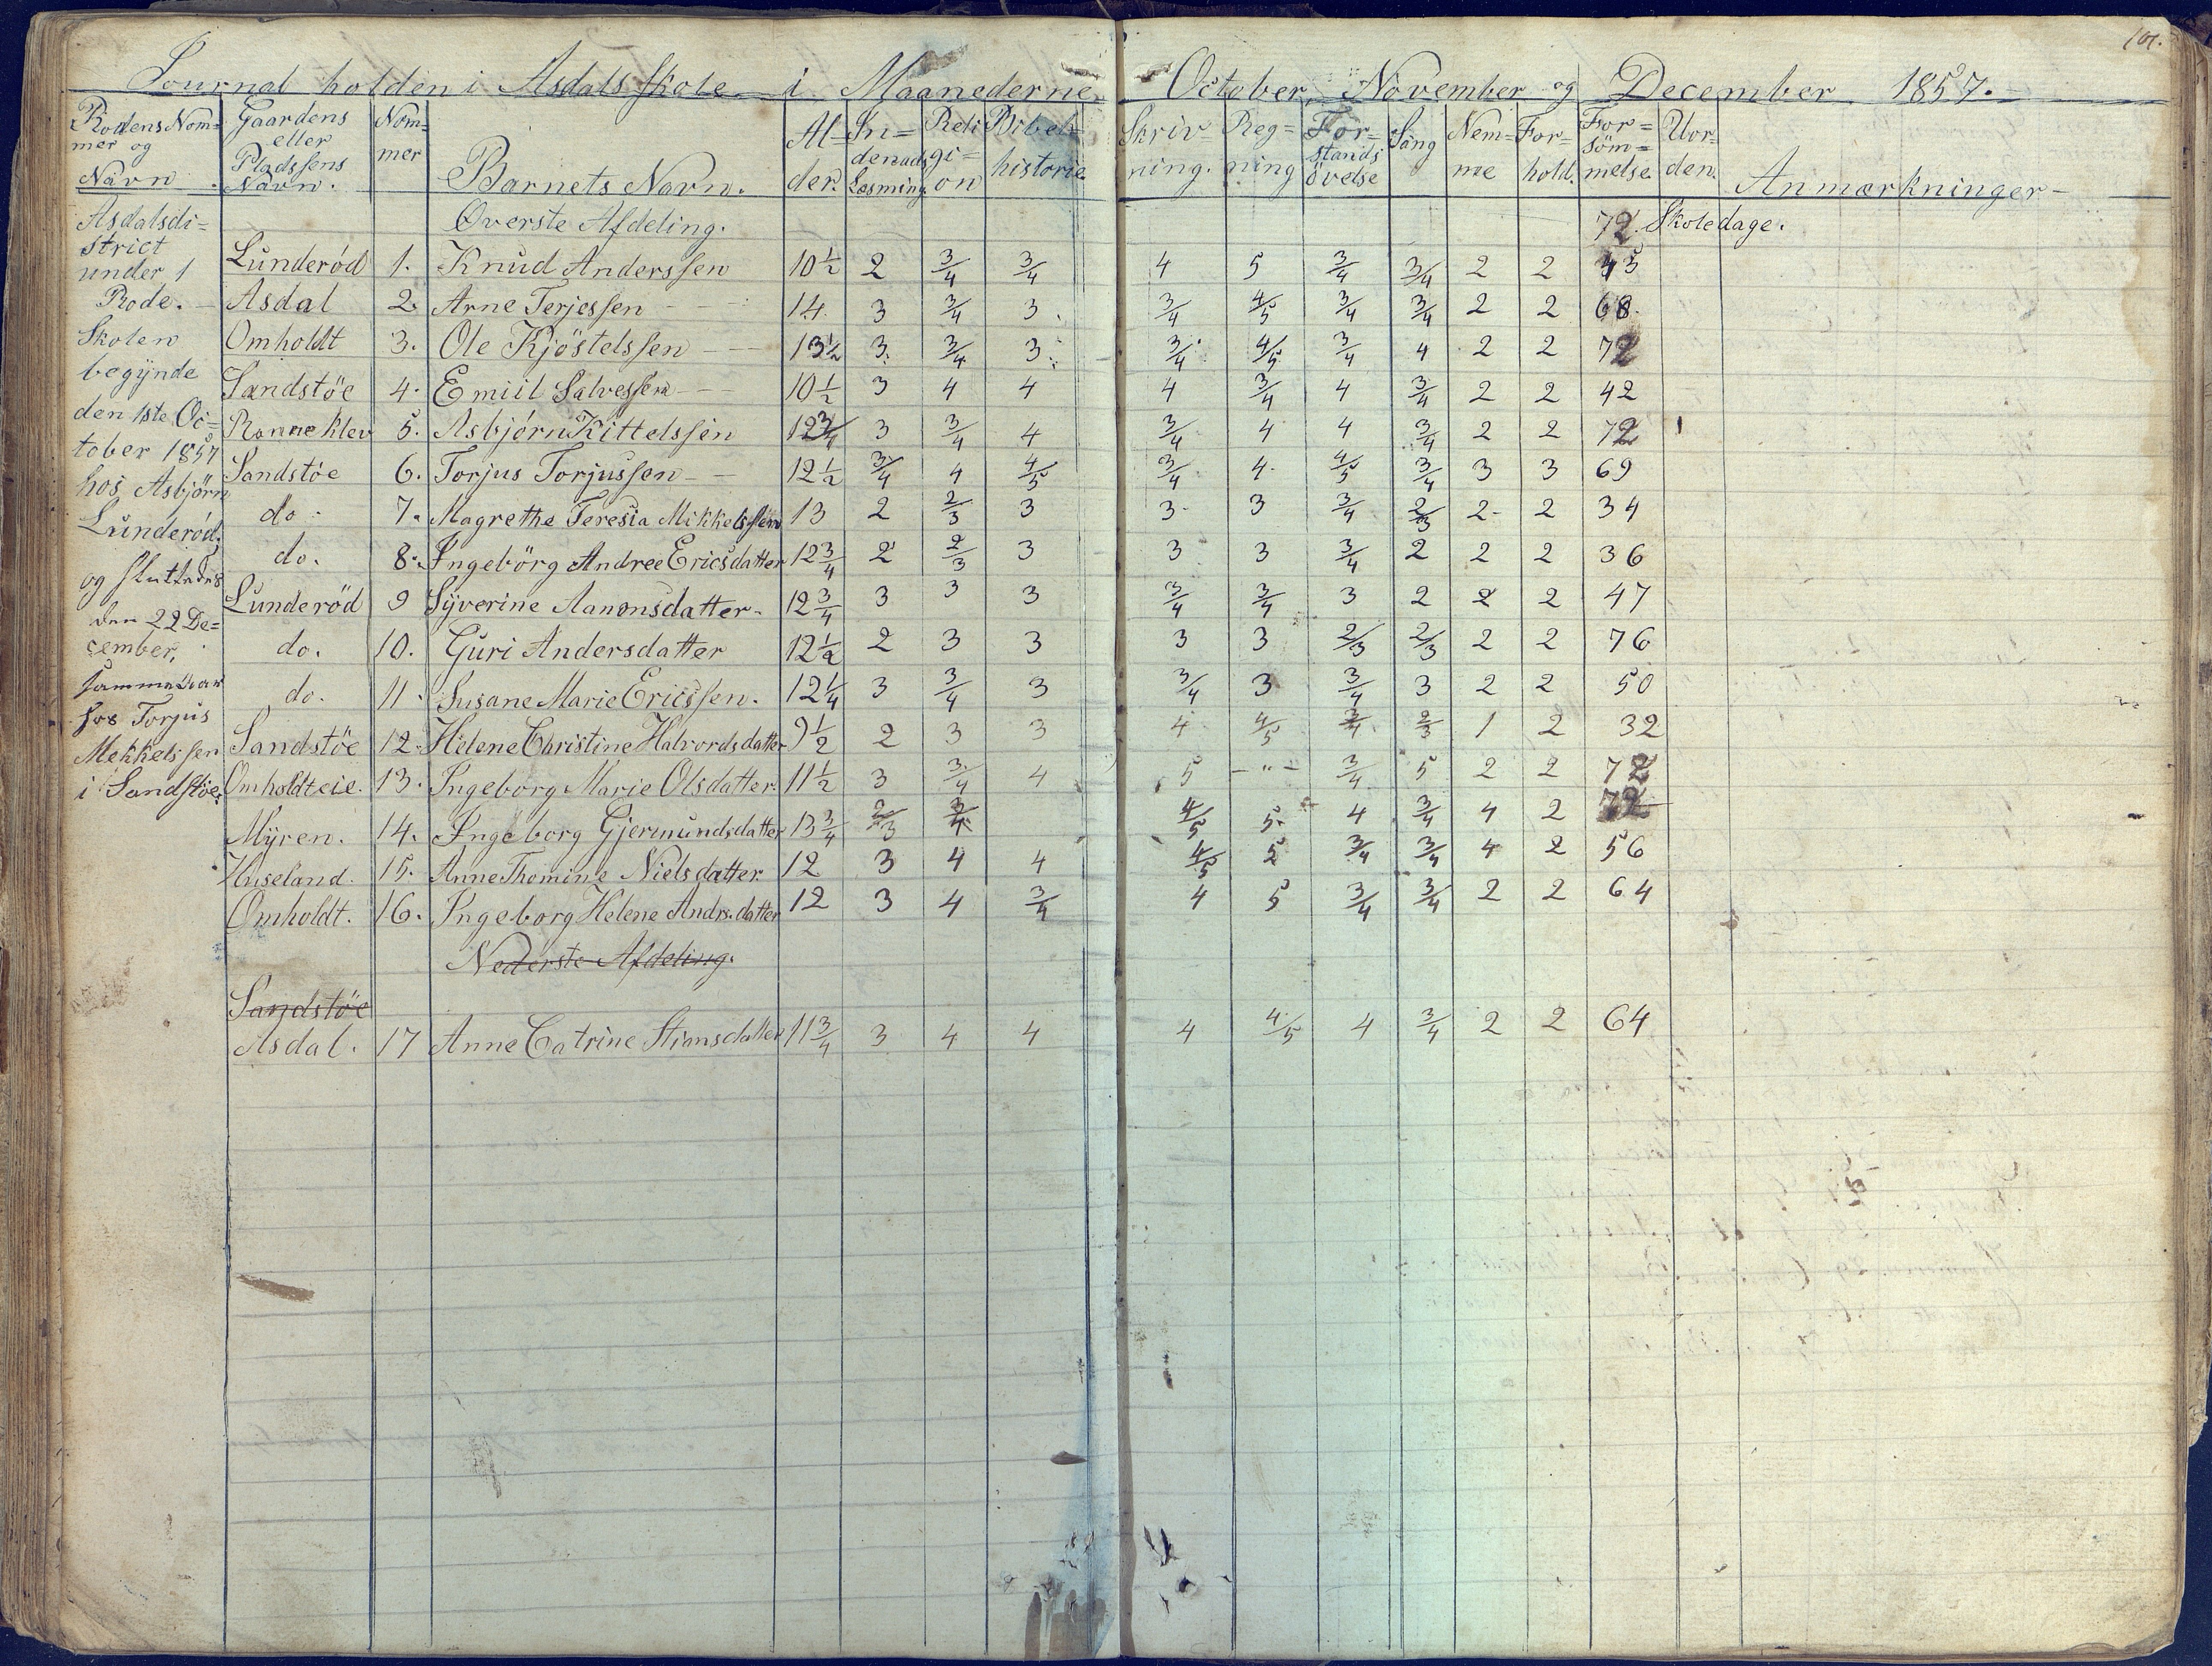 101.
Journal holden i Asdals Skole i Maanederne October, November og December 1857.
Rodens Nom=
mer og
Navn.
Gaardens
eller
Pladssens
Navn.
Nom=
mer
Barnets Navn.
Al=
der.
In=
denads
Læsning
Reli
gi=
on
Bibel=
historie
Skriv
ning.
Reg=
ning
For=
stands
övelse
Sång
Nem=
me
For=
hold.
For=
söm=
melse
Uor=
den.
Anmærkninger
Asdalsdi=
strict
under 1
Rode.
Skolen
begÿnde
den 1ste Oc=
tober 1857
hos Asbjörn
Lunderöd,
og sluttedes
den 22 De=
cember,
samme Aar
hos Torjus
Mekkelssen
i Sandstöe.
Øverste Afdeling. 72 Skoledage.
Lunderöd 1. Knud Anderssen 10 1/2 2 3/4 3/4 4 5 3/4 3/4 2 2 43
Asdal 2. Arne Terjessen 14 3 3/4 3 3/4 4/5 3/4 3/4 2 2 68
Omholdt 3. Ole Kjöstelssen 13 1/2 3 3/4 3 3/4 4/5 3/4 4 2 2 72
Sandstöe 4. Emiil Salvessen 10 1/2 3 4 4 4 3/4 4 3/4 2 2 42
Ranneklev 5. Asbjörn Kittelssen 12 3/4 3 3/4 4 3/4 4 4 3/4 2 2 72 1
Sandstöe 6. Torjus Torjussen 12 1/2 3/4 4 4/5 3/4 4 4/5 3/4 3 3 69
do 7. Magrethe Teresia Mikkelssen 13 2 2/3 3 3 3 3/4 2/3 2 2 34
do. 8. Ingebörg Andree Ericsdatter 12 3/4 2 2/3 3 3 3 3/4 2 2 2 36
Lunderöd 9 Sÿverine Aanonsdatter 12 3/4 3 3 3 3/4 3/4 3 2 2 2 47
do. 10. Guri Andersdatter 12 1/2 2 3 3 3 3 2/3 2/3 2 2 76
do. 11 Susane Marie Ericssen. 12 1/4 3 3/4 3 3/4 3 3/4 3 2 2 50
Sandstöe 12. Helene Christine Halvordsdatter 9 1/2 2 3 3 4 4/5 3/4 2/3 1 2 32
Omholdteie. 13. Ingeborg Marie Olsdatter 11 1/2 3 3/4 4 5 - " - 3/4 5 2 2 72
Mÿren. 14. Ingeborg Gjermundsdatter 13 3/4 2/3 3/4 4/5 5 4 3/4 4 2 72
Huseland. 15. Anne Thomine Nielsdatter 12 3 4 4 4/5 5 3/4 3/4 4 2 56
Omholdt. 16. Ingeborg Helene Andrs.datter 12 3 4 3/4 4 5 3/4 3/4 2 2 64
Nederste Afdeling.
Sandstöe
Asdal. 17 Anne Catrine Stiansdatter 11 3/4 3 4 4 4 4/5 4 3/4 2 2 64